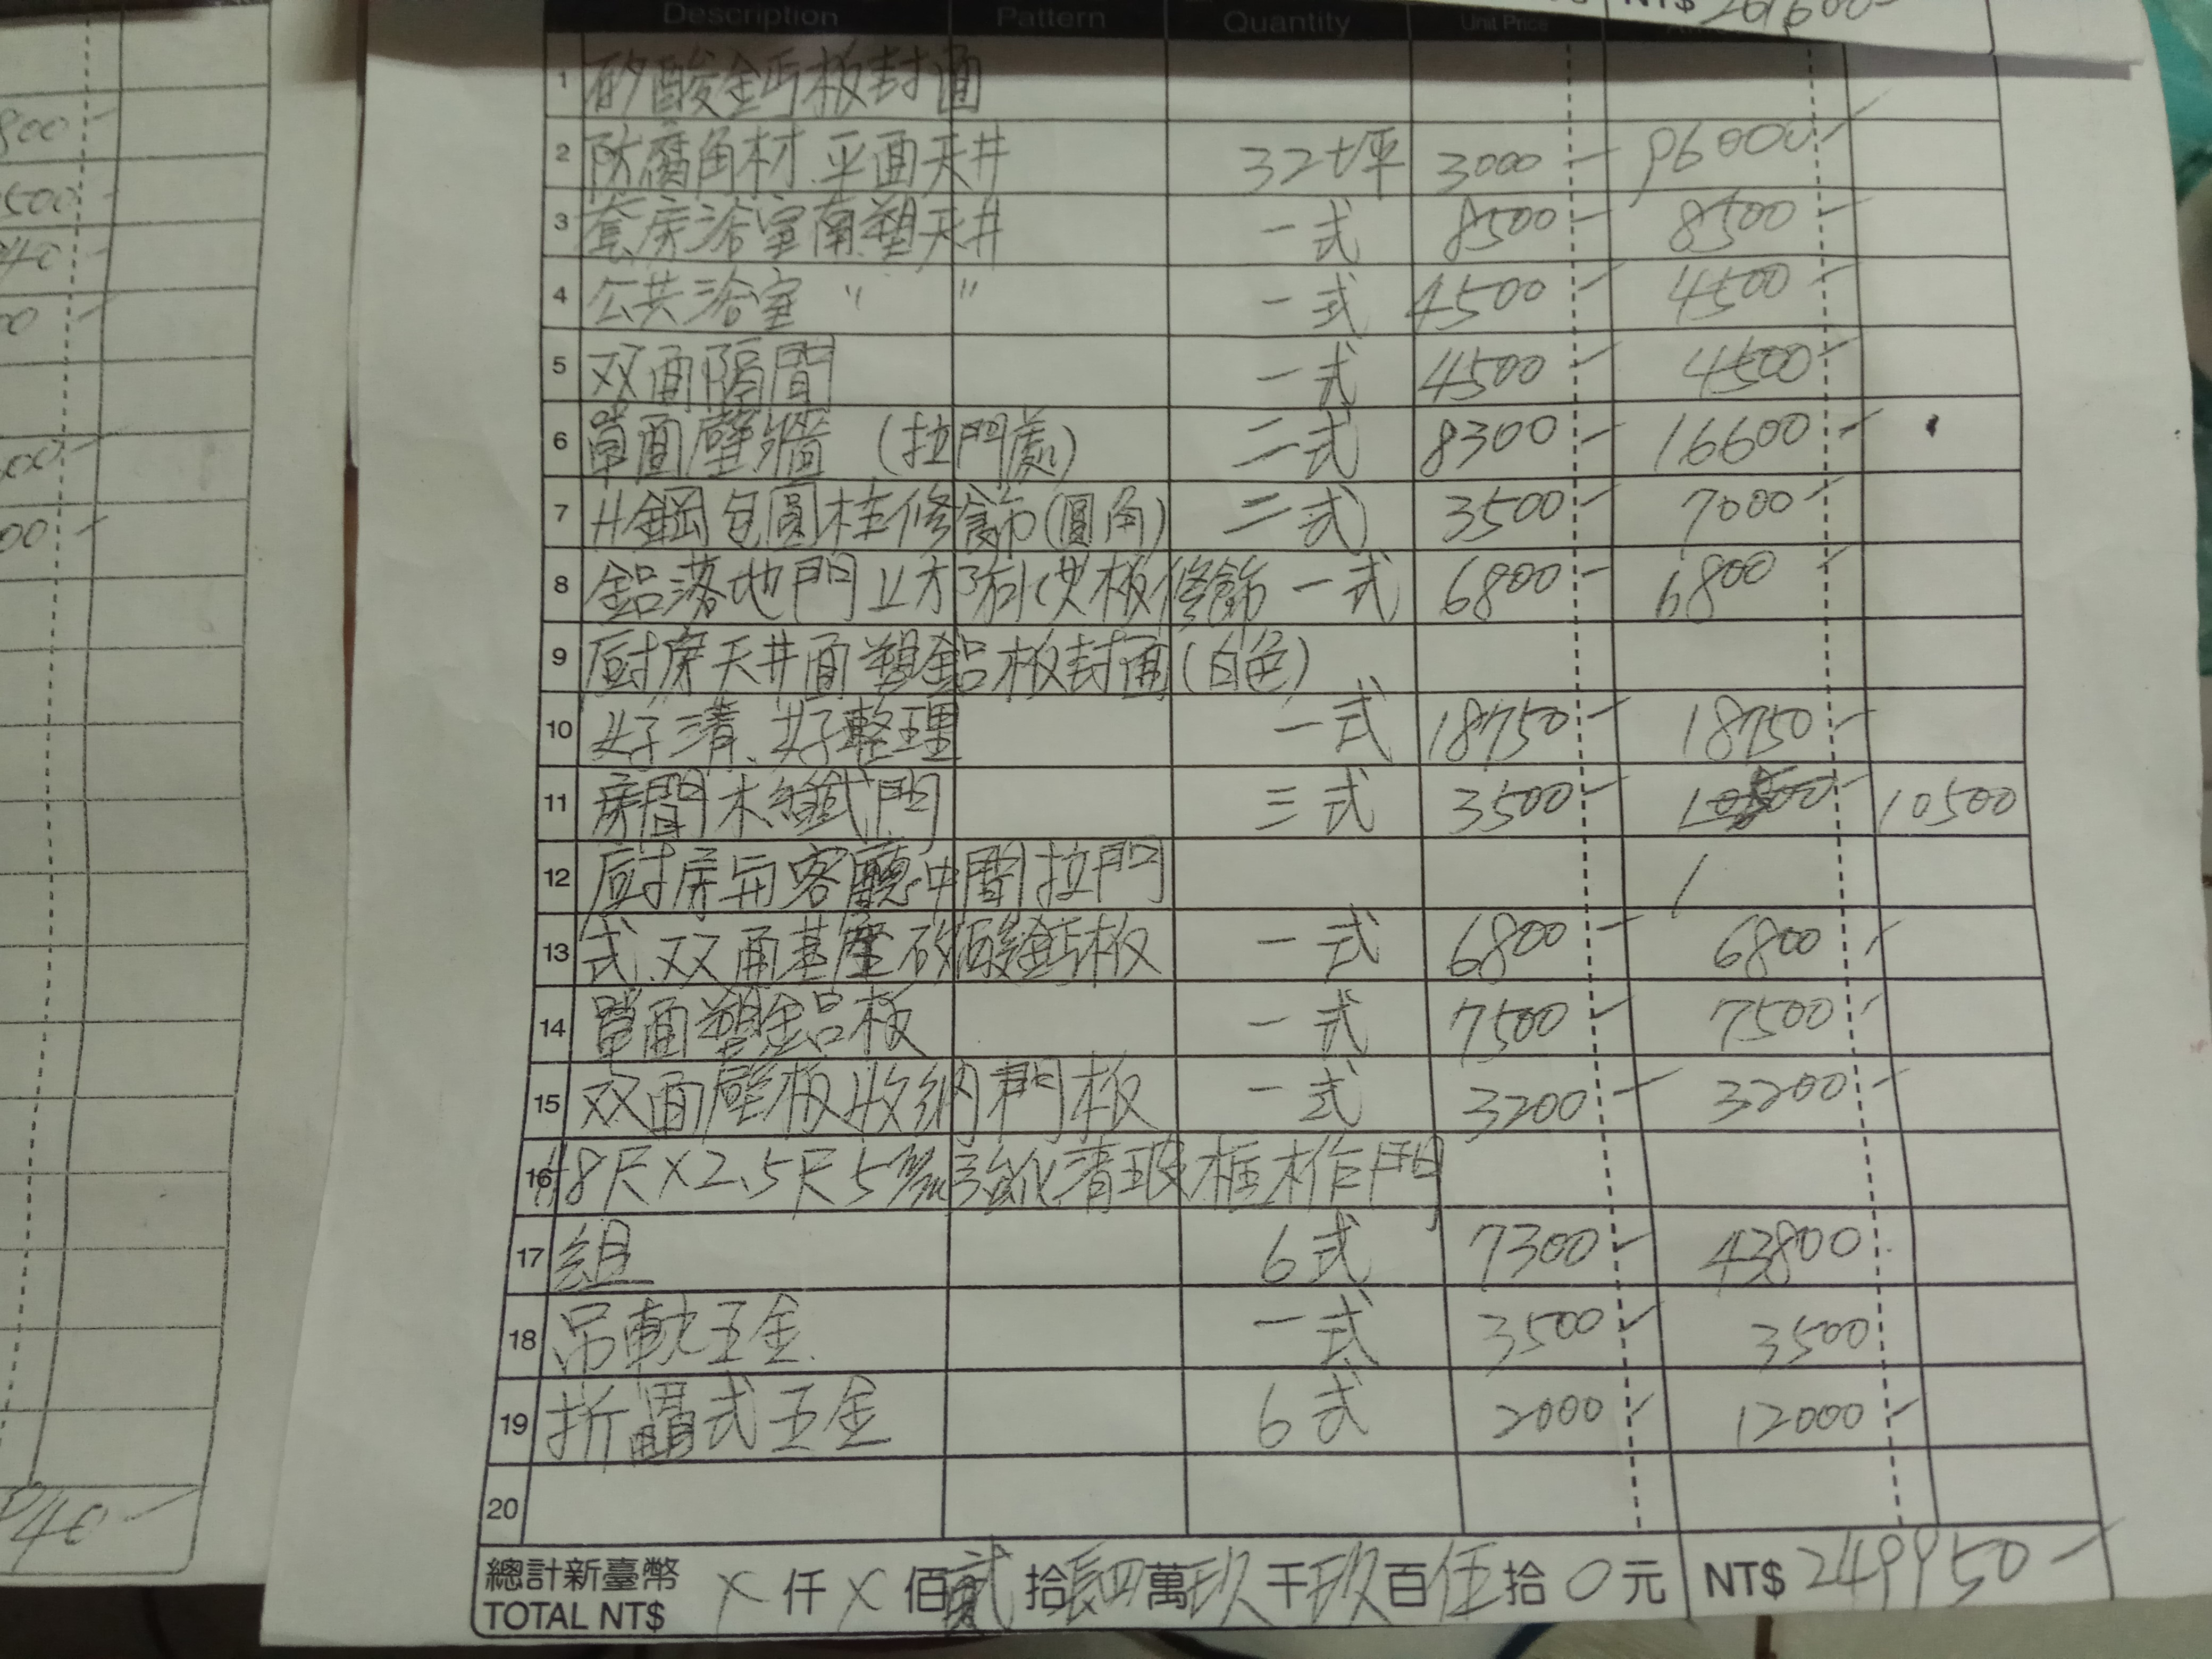 800-
500-
40-
00-
00-
940-
NT$ 261600-
Description Pattern Quantity Unit Price
1 矽酸鈣板封面
2 防腐角材.平面天井 32坪 3000- 96000-
3 套房浴室南塑天井 一式 8500- 8500-
4 公共浴室 〃 〃 一式 4500- 4500-
5 双面隔間 一式 4500- 4500-
6 單面壁牆 (拉門處) 二式 8300- 16600-
7 H鋼包圓柱修飾(圓角) 二式 3500- 7000-
8 鋁落地門立木 板修飾 一式 6800- 6800-
9 厨房天井面塑鋁板封面(白色)
10 好清、好整理 一式 18750- 18750-
11 房間木纖門 三式 3500- 10500- 10500
12 厨房与客廳中間拉門
13 式.双面基座矽酸鈣板 一式 6800- 6800-
14 單面塑鋁板 一式 7500- 7500-
15 双面壁板收納門板 一式 3200- 3200-
16 8尺×2.5尺5㎜強化清玻框木作門
17 組 6式 7300- 43800
18 吊軌五金 一式 3500- 3500
19 折疊式五金 6式 2000- 12000-
20
總計新臺幣 X仟X佰貳拾肆萬玖千玖百伍拾0元 NT$ 249950-
TOTAL NT$